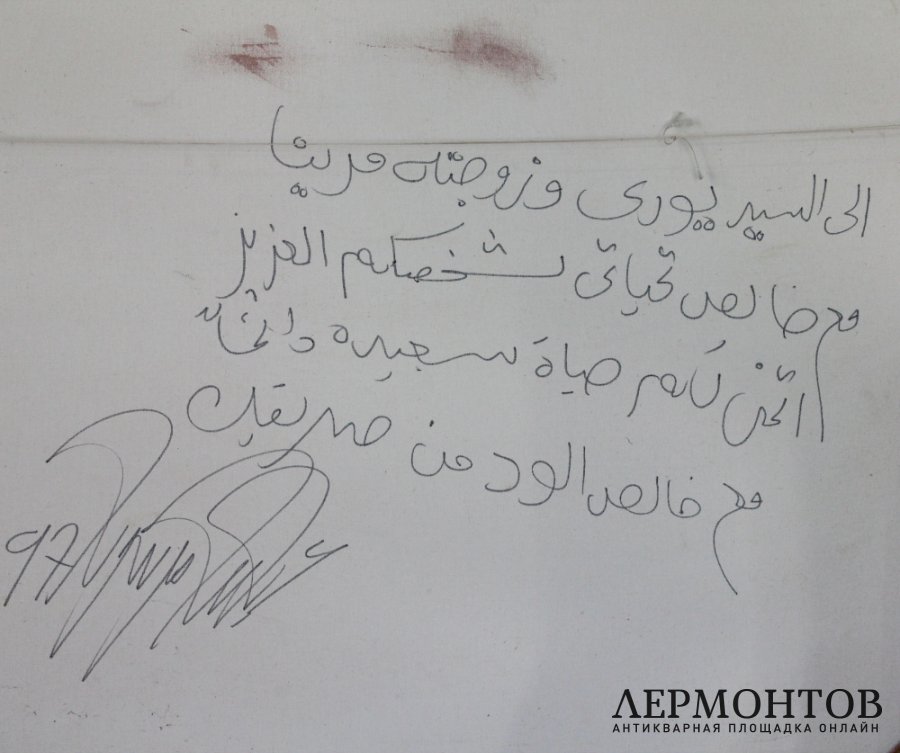 الى السيد يوري وزوجته مرينا
مع خالص تحياتي لشخصكم العزيز
اتمنى لكم حياة سعيدة دائماً
مع خالص الود من صديقك
97
ЛЕРМОНТОВ
АНТИКВАРНАЯ ПЛОЩАДКА ОНЛАЙН